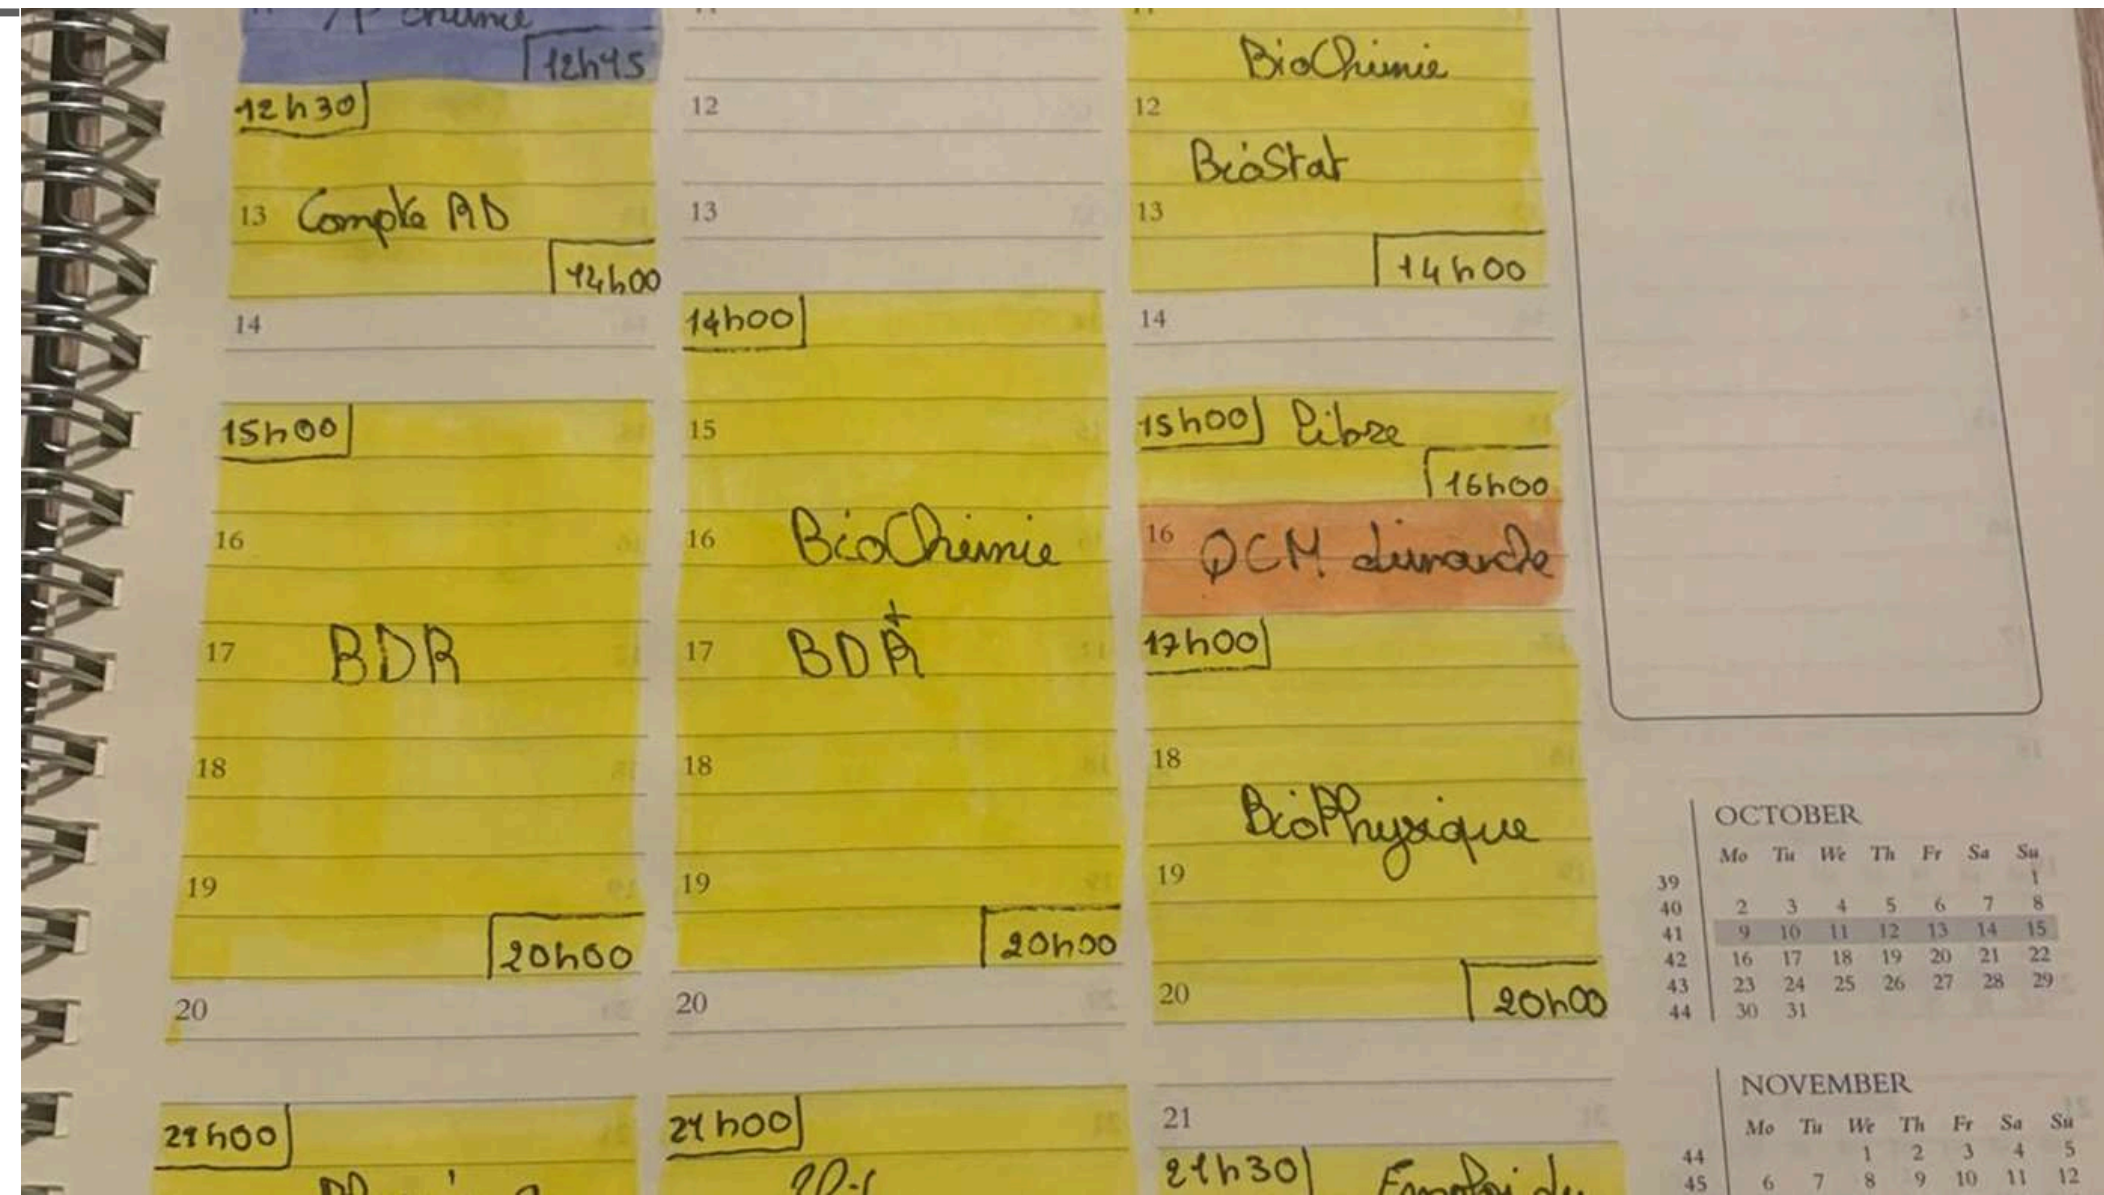 TP chimie
12h45
12h30
13 Compte RD
14h00
14
15h00
16
17 BDR
18
19
20h00
20
21h00
12
13
14h00
15
16 BioChimie
+
17 BDR
18
19
20h00
20
21h00
11
BioChimie
12
BioStat
13
14h00
14
15h00 libre
16h00
16 QCM dimanche
17h00
18
BioPhysique
19
20
20h00
21
21h30 Emploi du
OCTOBER
Mo Tu We Th Fr Sa Su
39 1
40 2 3 4 5 6 7 8
41 9 10 11 12 13 14 15
42 16 17 18 19 20 21 22
43 23 24 25 26 27 28 29
44 30 31
NOVEMBER
Mo Tu We Th Fr Sa Su
44 1 2 3 4 5
45 6 7 8 9 10 11 12